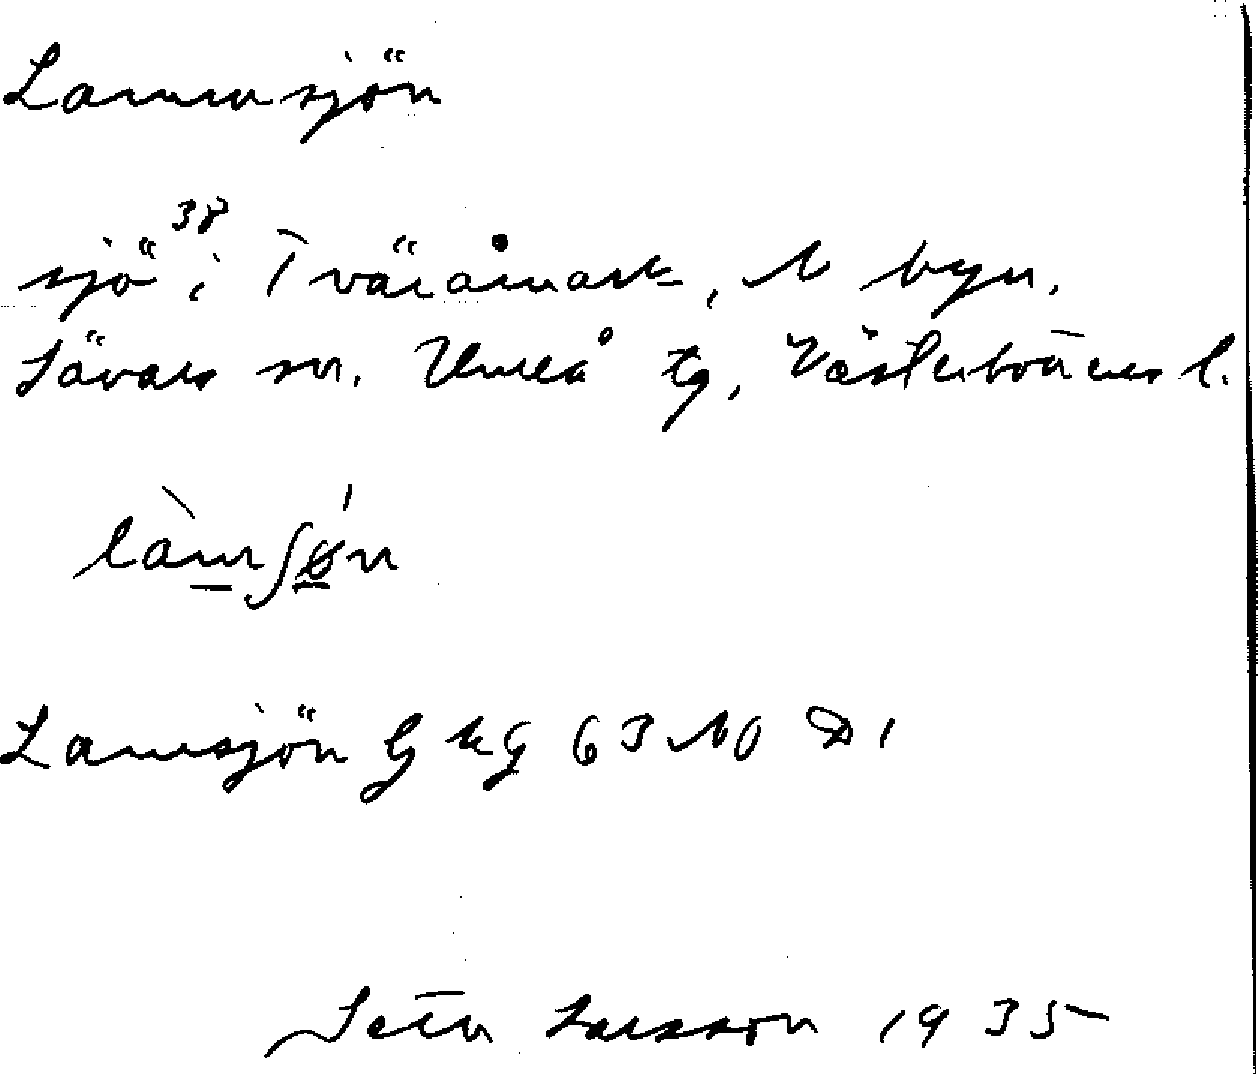 Lammsjön
sjö 38 i Tväråmark, N byn.
Sävars sn. Umeå tg, Västerbottens l.
làmʃǿn
Lamsjön GKG 63 NO D1
Seth Larsson 1935